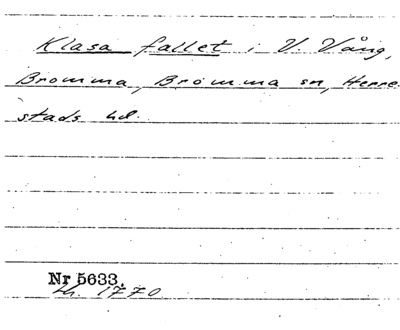 Klasa fallet i V. Vång,
Bromma, Bromma sn, Herre-
stads hd.
Nr 5633.
Lh. 1770